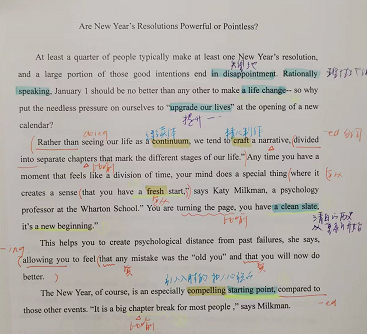 Are New Year's Resolutions Powerful or Pointless?
At least a quarter of people typically make at least one New Year's resolution,
and a large portion of those good intentions end in disappointment. Rationally
speaking, January 1 should be no better than any other to make a life change-- so why
put the needless pressure on ourselves to "upgrade our lives" at the opening of a new
calendar?
Rather than seeing our life as a continuum, we tend to craft a narrative, divided
into separate chapters that mark the different stages of our life." Any time you have a
moment that feels like a division of time, your mind does a special thing where it
creates a sense that you have a fresh start," says Katy Milkman, a psychology
professor at the Wharton School." You are turning the page, you have a clean slate,
it's a new beginning."
This helps you to create psychological distance from past failures, she says,
allowing you to feel that any mistake was the "old you" and that you will now do
better.
The New Year, of course, is an especially compelling starting point, compared to
those other events. "It is a big chapter break for most people ," says Milkman.